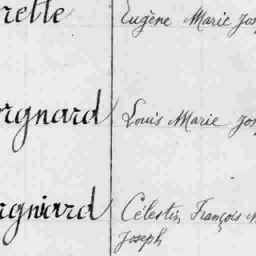 rette Eugène Marie Jos
orgnard Louis Marie Jos
rgniard Célestin François
Joseph